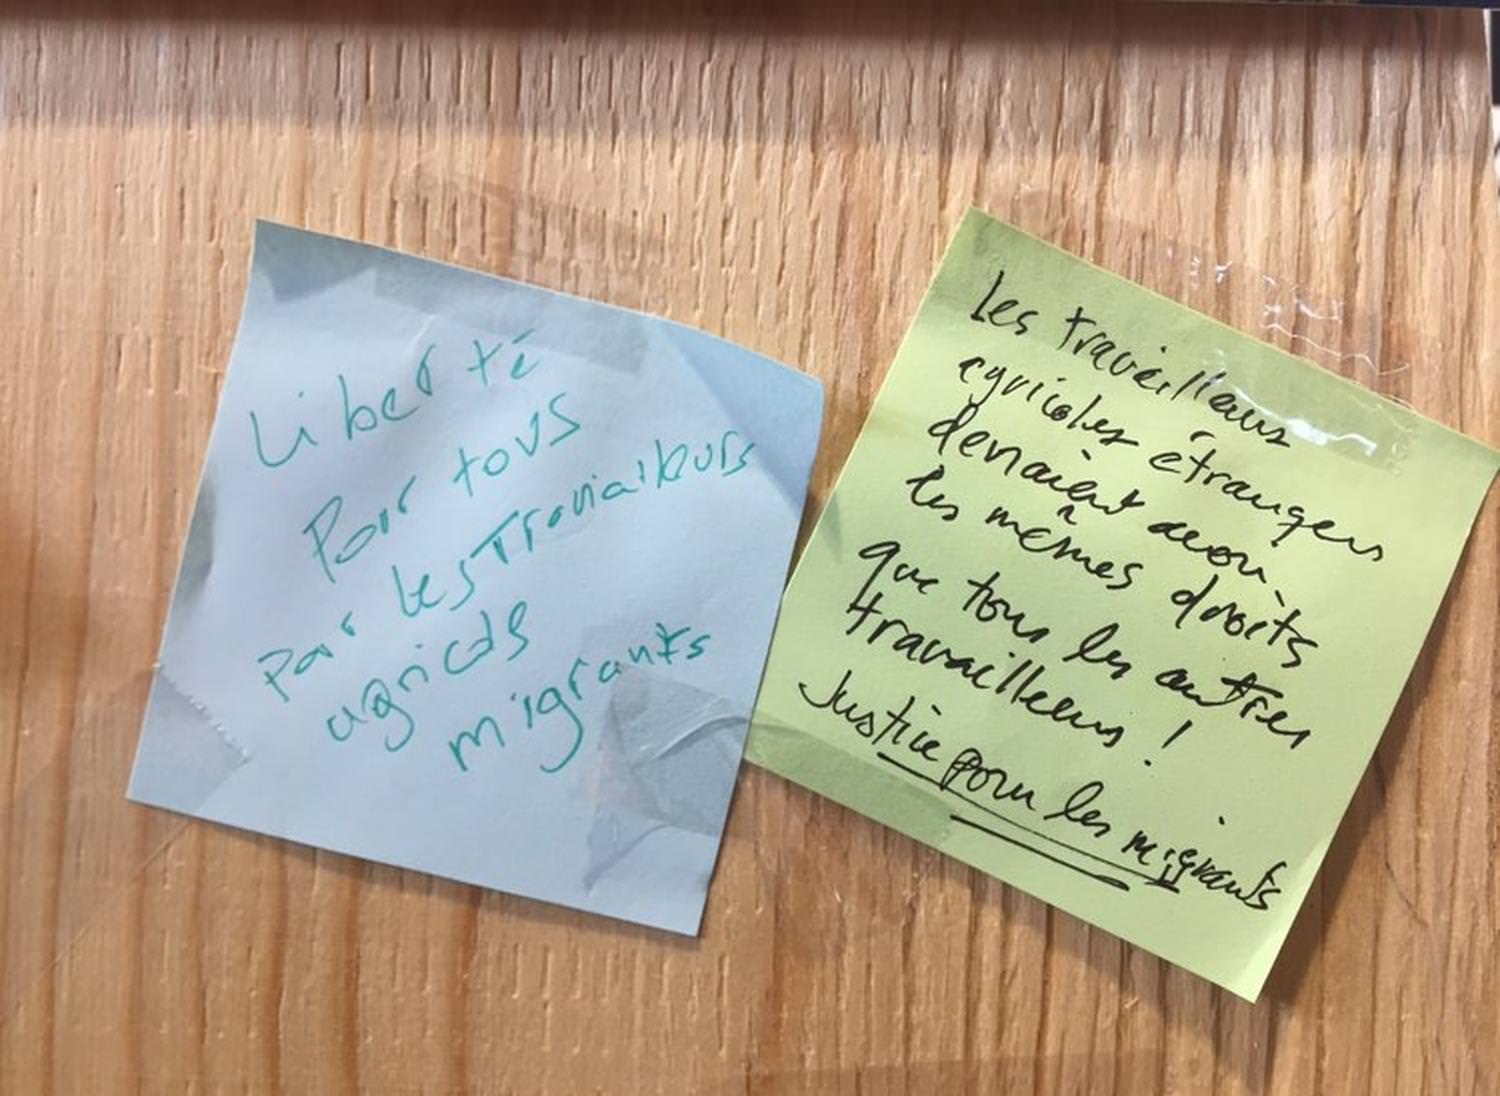 Liberté
Pour tous
Par les Travailleurs
agricols
migrants
Les travailleurs
agricoles étrangers
devraient avoir
les mêmes droits
que tous les autres
travailleurs !
Justice pour les migrants